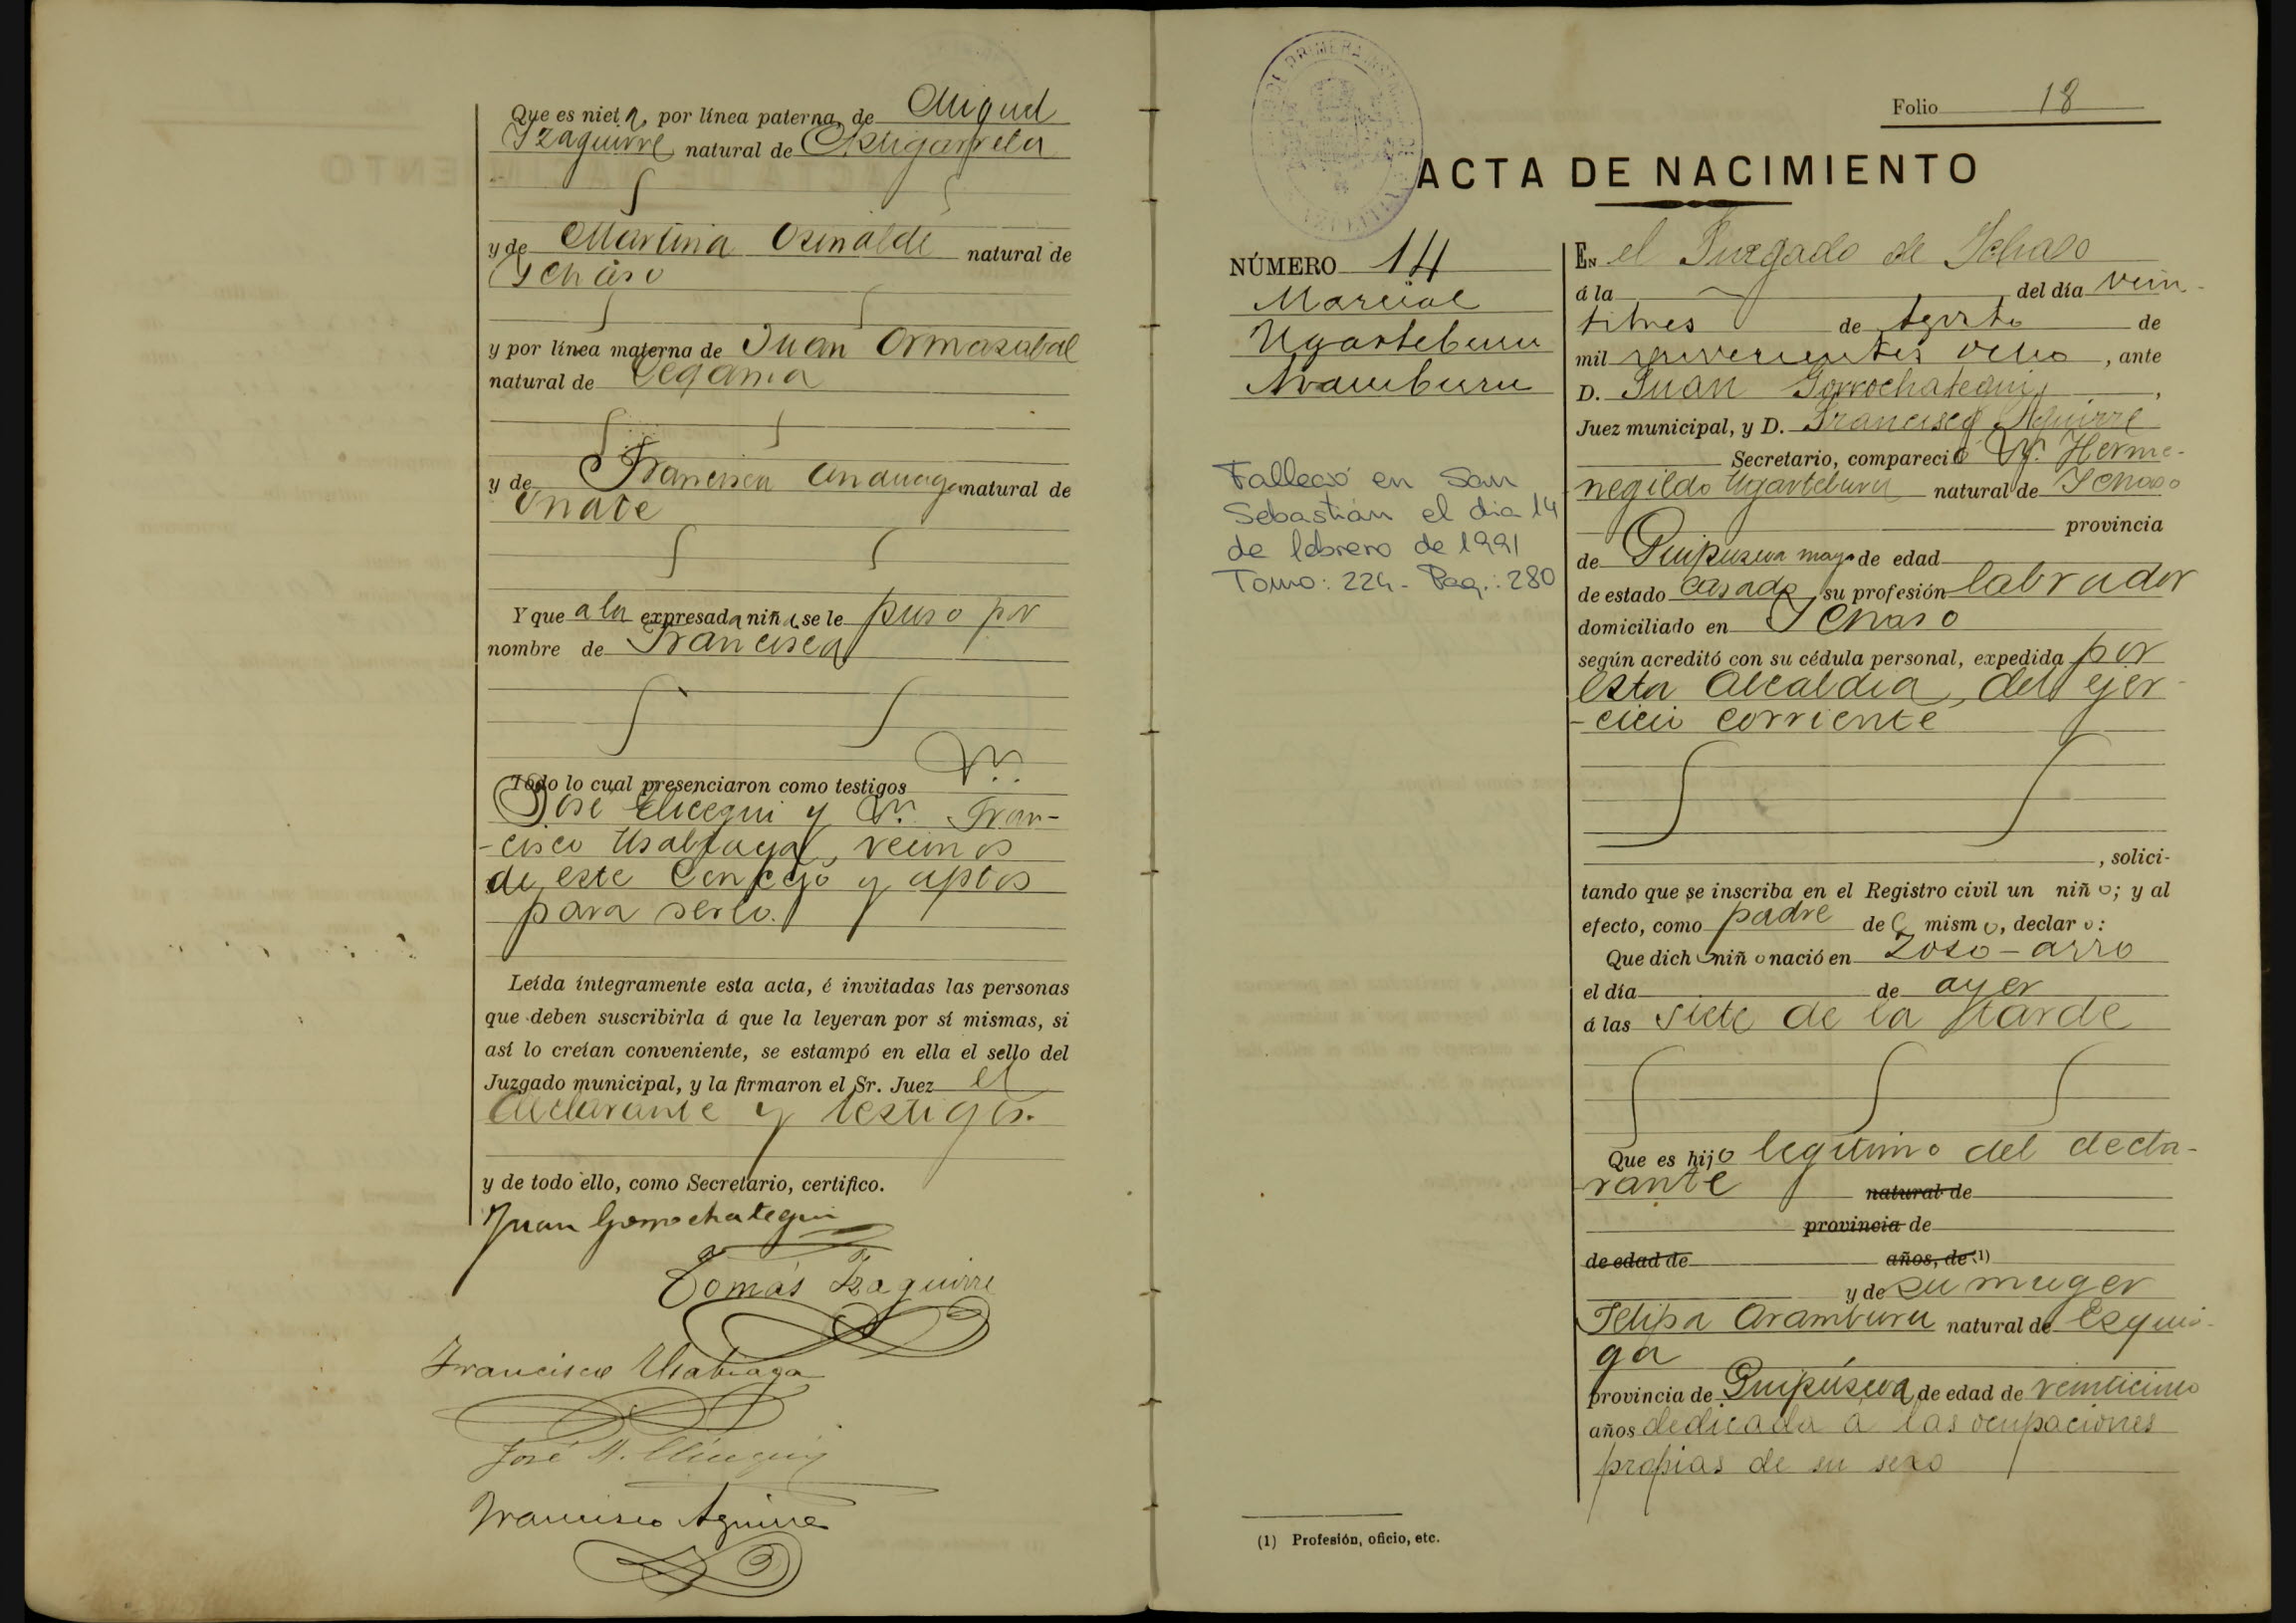 Que es nieta, por línea paterna, de Miguel
Yzaguirre natural de Astigarreta
y de Martina Osinalde natural de
Ychaso
y por línea materna de Juan Ormasabal
natural de Cegama
y de Francisca Anduaga natural de
Oñate
Y que a la expresada niña se le puso por
nombre de Francisca
Todo lo cual presenciaron como testigos Dn.
José Elicegui y Dn. Fran-
-cisco Usabiaga, vecinos
de este Concejo y aptos
para serlo.
Leída íntegramente esta acta, é invitadas las personas
que deben suscribirla á que la leyeran por sí mismas, si
así lo creían conveniente, se estampó en ella el sello del
Juzgado municipal, y la firmaron el Sr. Juez el
declarante y testigos.
y de todo ello, como Secretario, certifico.
Juan Gorrochategui
Tomás Izaguirre
Francisco Usabiaga
José Elicegui
Francisco Aguirre
Folio 18
ACTA DE NACIMIENTO
NÚMERO 14
Marcial
Ugarteburu
Aramburu
Falleció en San
Sebastián el dia 14
de febrero de 1991
Tomo: 224 - Pag.: 280
EN el Juzgado de Ychaso
á la del día vein-
titres de Agosto de
mil novecientos ocho, ante
D. Juan Gorrochategui,
Juez municipal, y D. Francisco Aguirre
Secretario, compareció Dn. Herme-
negildo Ugarteburu natural de Ychaso
provincia
de Guipuzcoa mayor de edad
de estado casado, su profesión labrador
domiciliado en Ychaso
según acreditó con su cédula personal, expedida por
esta Alcaldia, del ejer-
-cicio corriente
, solici-
tando que se inscriba en el Registro civil un niño; y al
efecto, como padre del mismo, declaro:
Que dicho niño nació en Zozo-arro
el día de ayer
á las siete de la tarde
Que es hijo legitimo del decla-
rante natural de
provincia de
de edad de años, de (1)
y de su muger
Felipa Aramburu natural de Ezquio-
ga
provincia de Guipúzcoa de edad de veinticinco
años dedicada á las ocupaciones
propias de su sexo
(1) Profesión, oficio, etc.